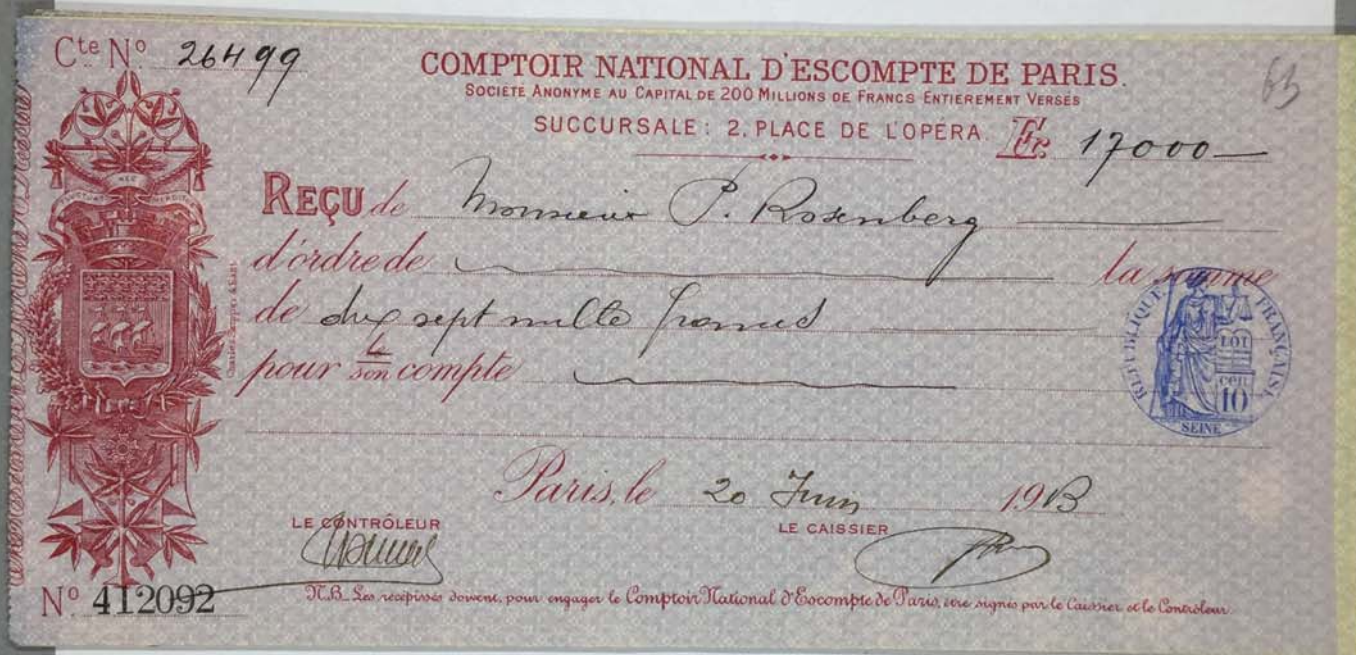 Cte No. 26499
COMPTOIR NATIONAL D'ESCOMPTE DE PARIS.
SOCIÉTÉ ANONYME AU CAPITAL DE 200 MILLIONS DE FRANCS ENTIÈREMENT VERSÉS
63
SUCCURSALE: 2, PLACE DE L'OPÉRA. Fr. 17000—
REÇU de Monsieur P. Rosenberg
d'ordre de la somme
de dix sept mille francs
pour son compte
RÉPUBLIQUE FRANÇAISE
LOI
CEN
10
SEINE
Paris, le 20 Juin 1913
LE CONTRÔLEUR LE CAISSIER
No 412092
N.B. Les récépissés doivent, pour engager le Comptoir National d'Escompte de Paris, être signés par le Caissier et le Contrôleur.